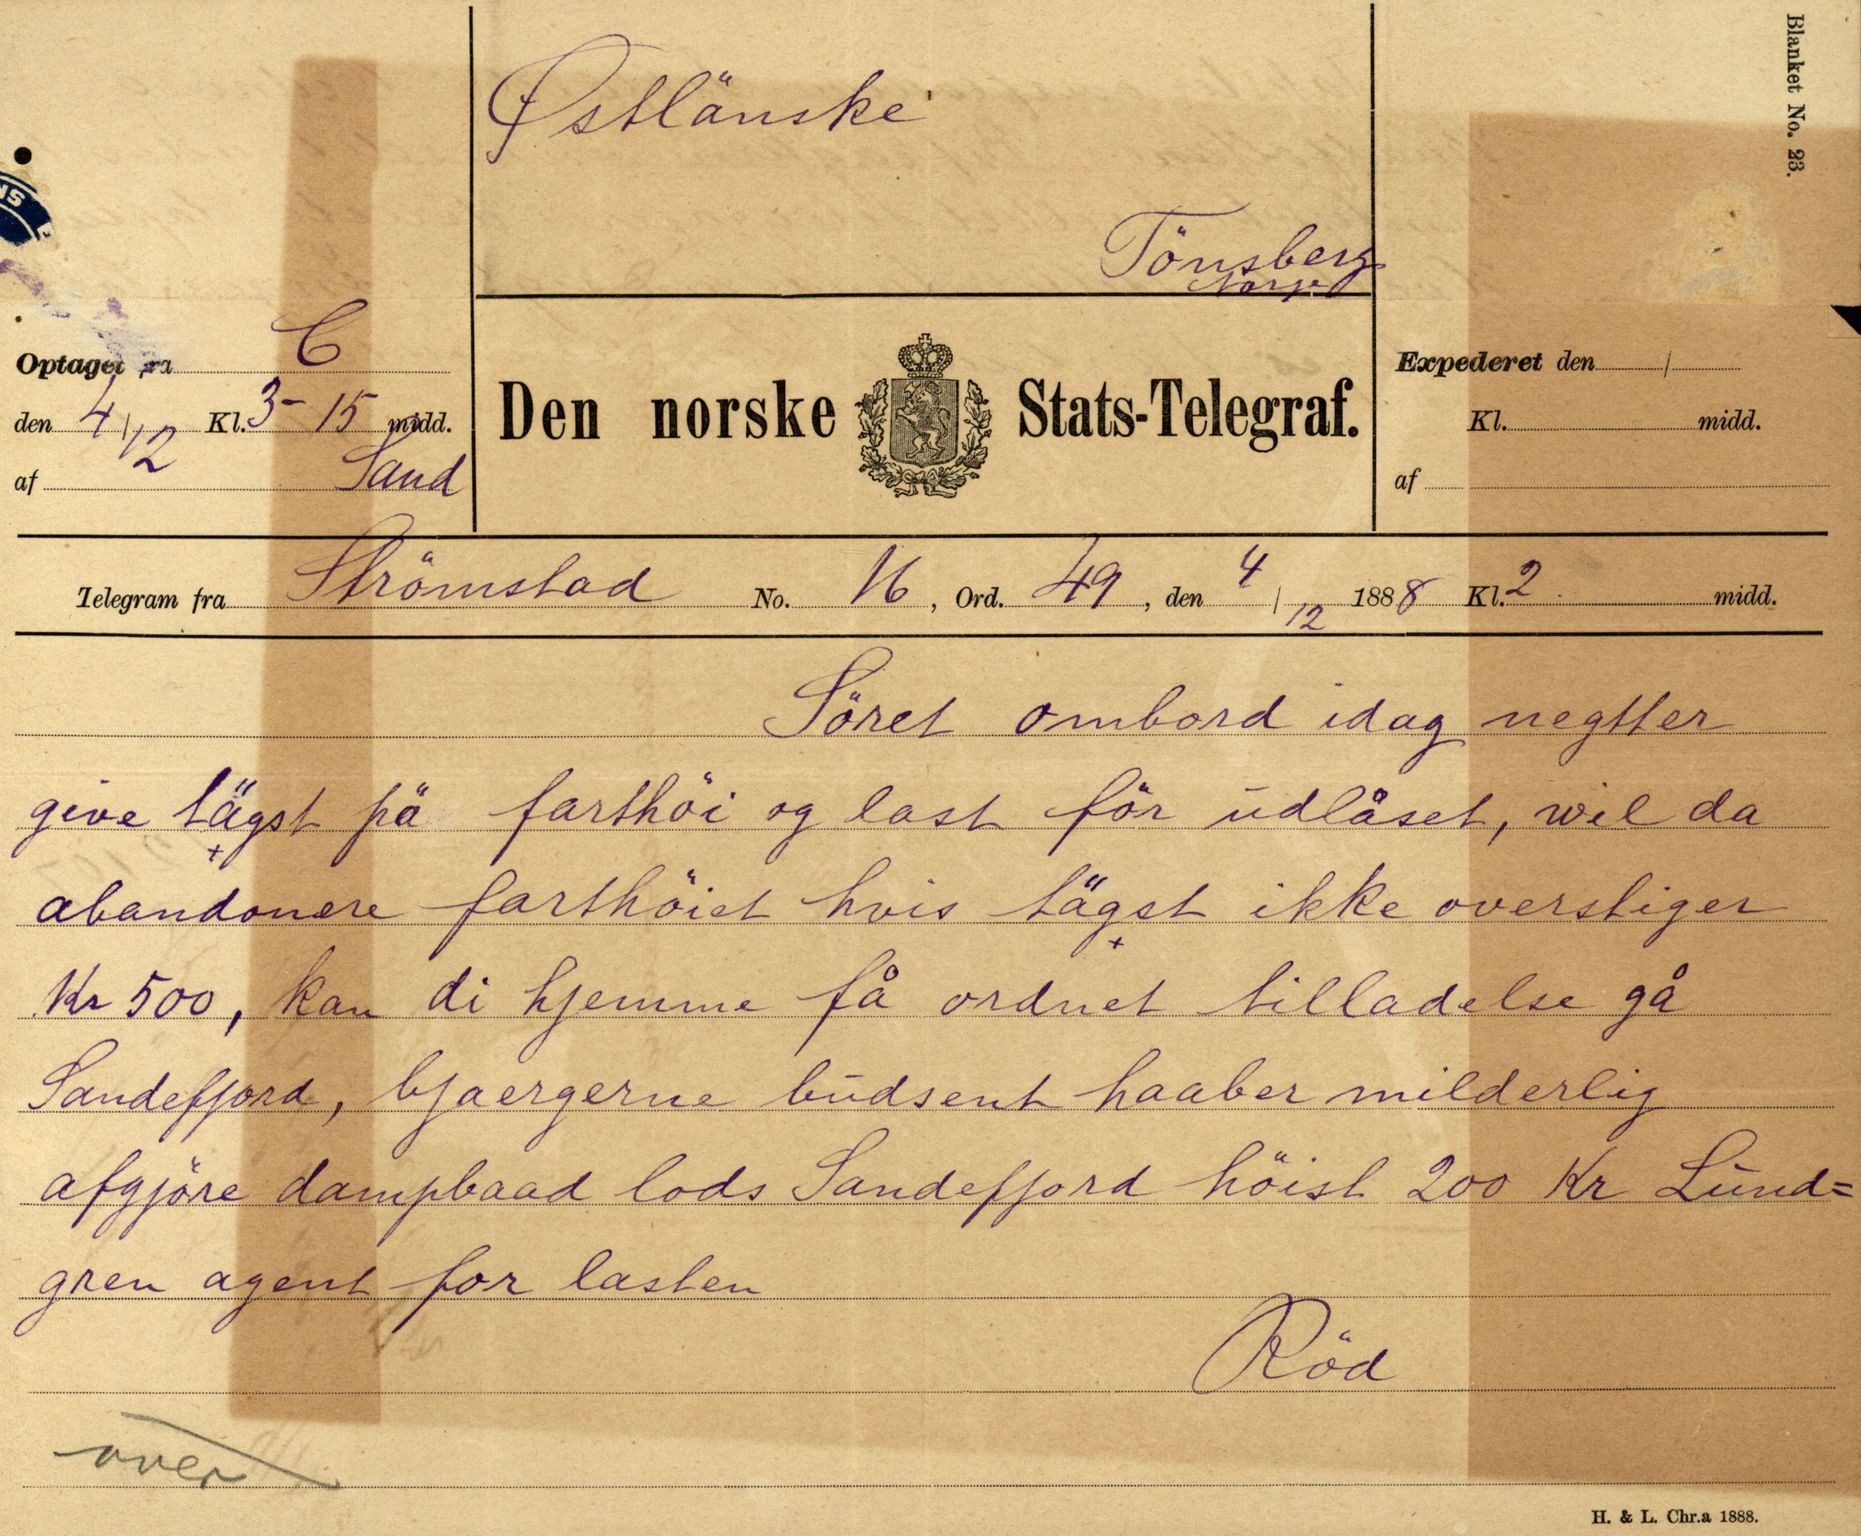 Blanket No. 23.
Østlänske
Tönsberg
Norge
Optaget fra C
den 4/12 Kl. 3-15 midd.
af Sand
Den norske Stats-Telegraf.
Expederet den /
Kl. midd.
af
Telegram fra Strömstad No. 16, Ord. 49, den 4/12 1888 Kl. 2 midd.
Söret ombord idag negtter
give tägst pä farthöi og last för udlåset, wil da
abandonere farthöiet hvis tägst ikke overstiger
Kr 500, kan di hjemme få ordnet tilladelse gå
Sandefjord, bjaergerne budsent haaber milderlig
afgjöre dampbaad lods Sandefjord höist 200 Kr Lund=
gren agent for lasten
Röd
over
H. & L. Chr.a 1888.